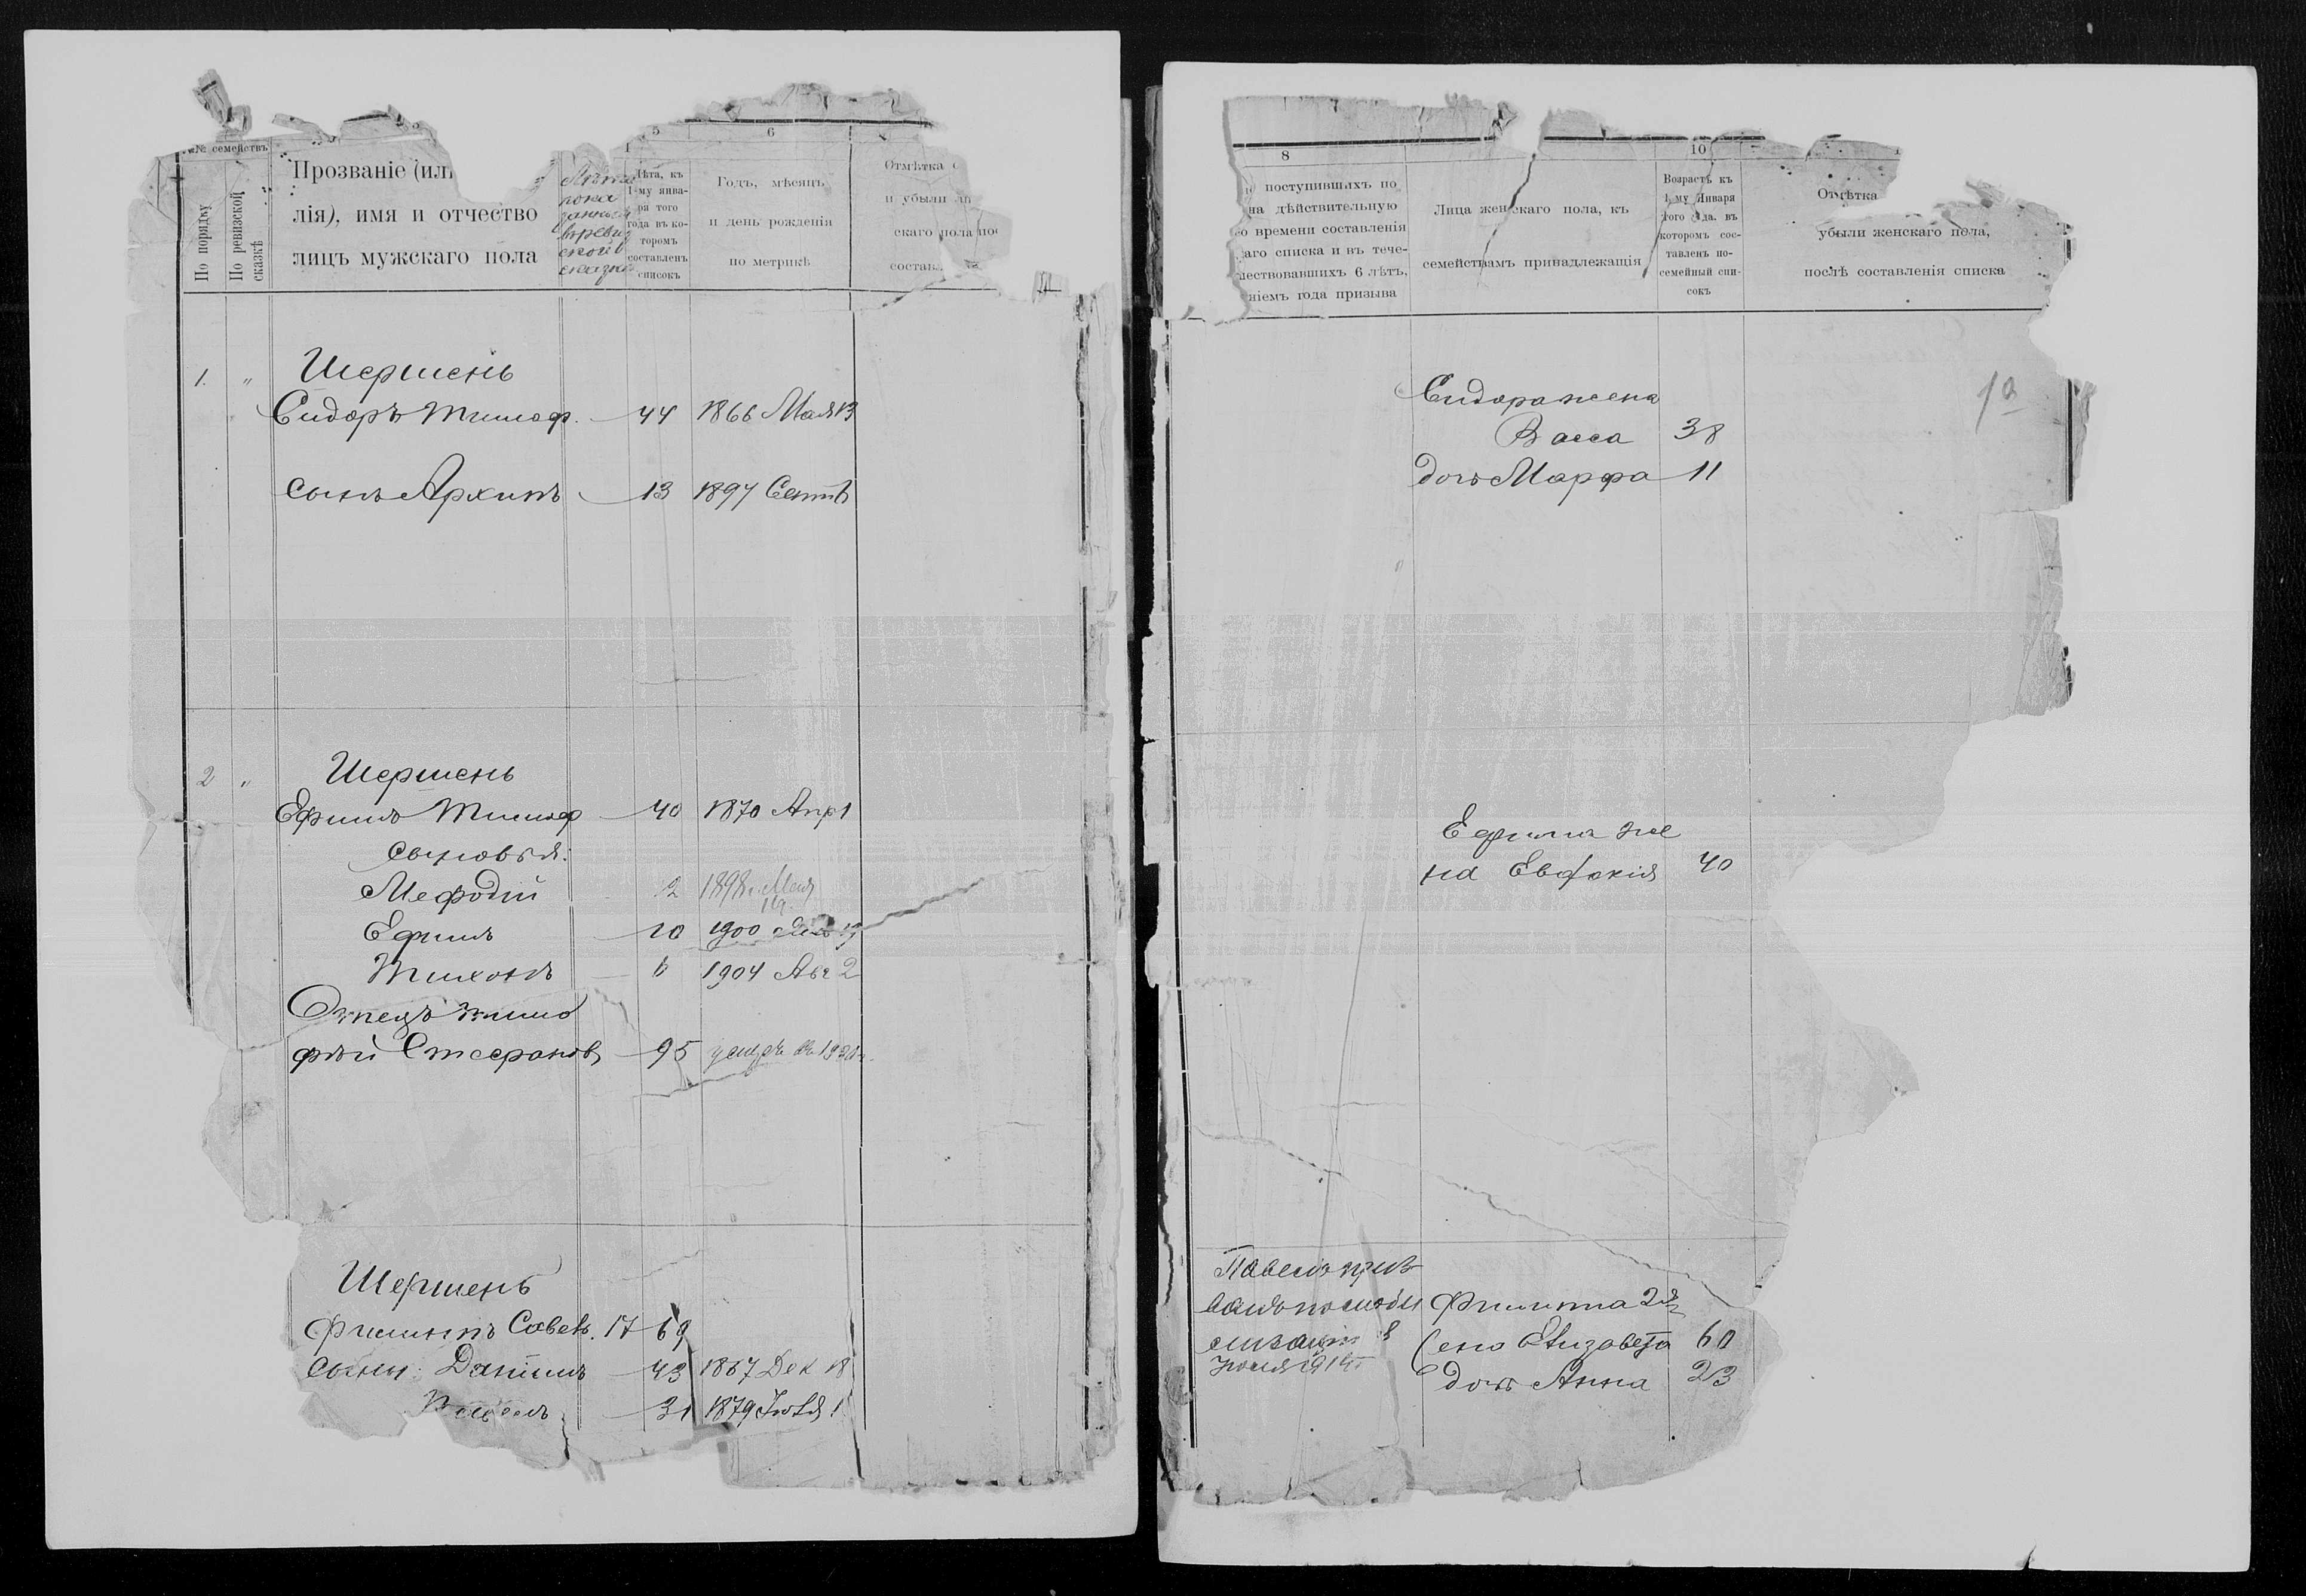 5
6
№ семействъ
По порядку
По ревизской сказкѣ
Прозваніе (ил
лія), имя и отчество
лицъ мужскаго пола
Лѣта, къ
1-му янва-
ря того
года въ ко-
торомъ
составленъ
списокъ
Годъ, мѣсяцъ
и день рожденія
по метрикѣ
Отмѣтка
и убыли
скаго пола по
состав
1. " Шершень
Сидоръ Тимоф. 44 1866 Мая 13
сынъ Архипъ 13 1897 Сентб
2 " Шершень
Ефимъ Тимоф 40 1870 Апр 1
сыновья:
Мефодій 12 1898 г. Мая
Ефимъ 10 1900
Тихонъ 6 1904 Авг 2
Отецъ Тимо
фѣй Стефанов 95
Шершень
Филиппъ Савев. 17 69
сыны: Даніилъ 43 1867 Дек 18
Павелъ 31 1879 Іюля 1
8
10
поступившихъ по
на дѣйствительную
о времени составленія
аго списка и въ тече-
шествовавшихъ 6 лѣтъ,
ніемъ года призыва
Лица женскаго пола, къ
семействамъ принадлежащія
Возрастъ къ
1 му Января
того года. въ
которомъ сос-
тавленъ по-
семейный спи-
сокъ
Отмѣтка
убыли женскаго пола,
послѣ составленія списка
1а
Сидора жена
Васса 38
дочь Марфа 11
Ефима же
на Евдокія 40
Павелъ приз
ванъ по мобили
Филиппа 2я
жена Елизавета 60
Іюля 1914 г
дочь Анна 23